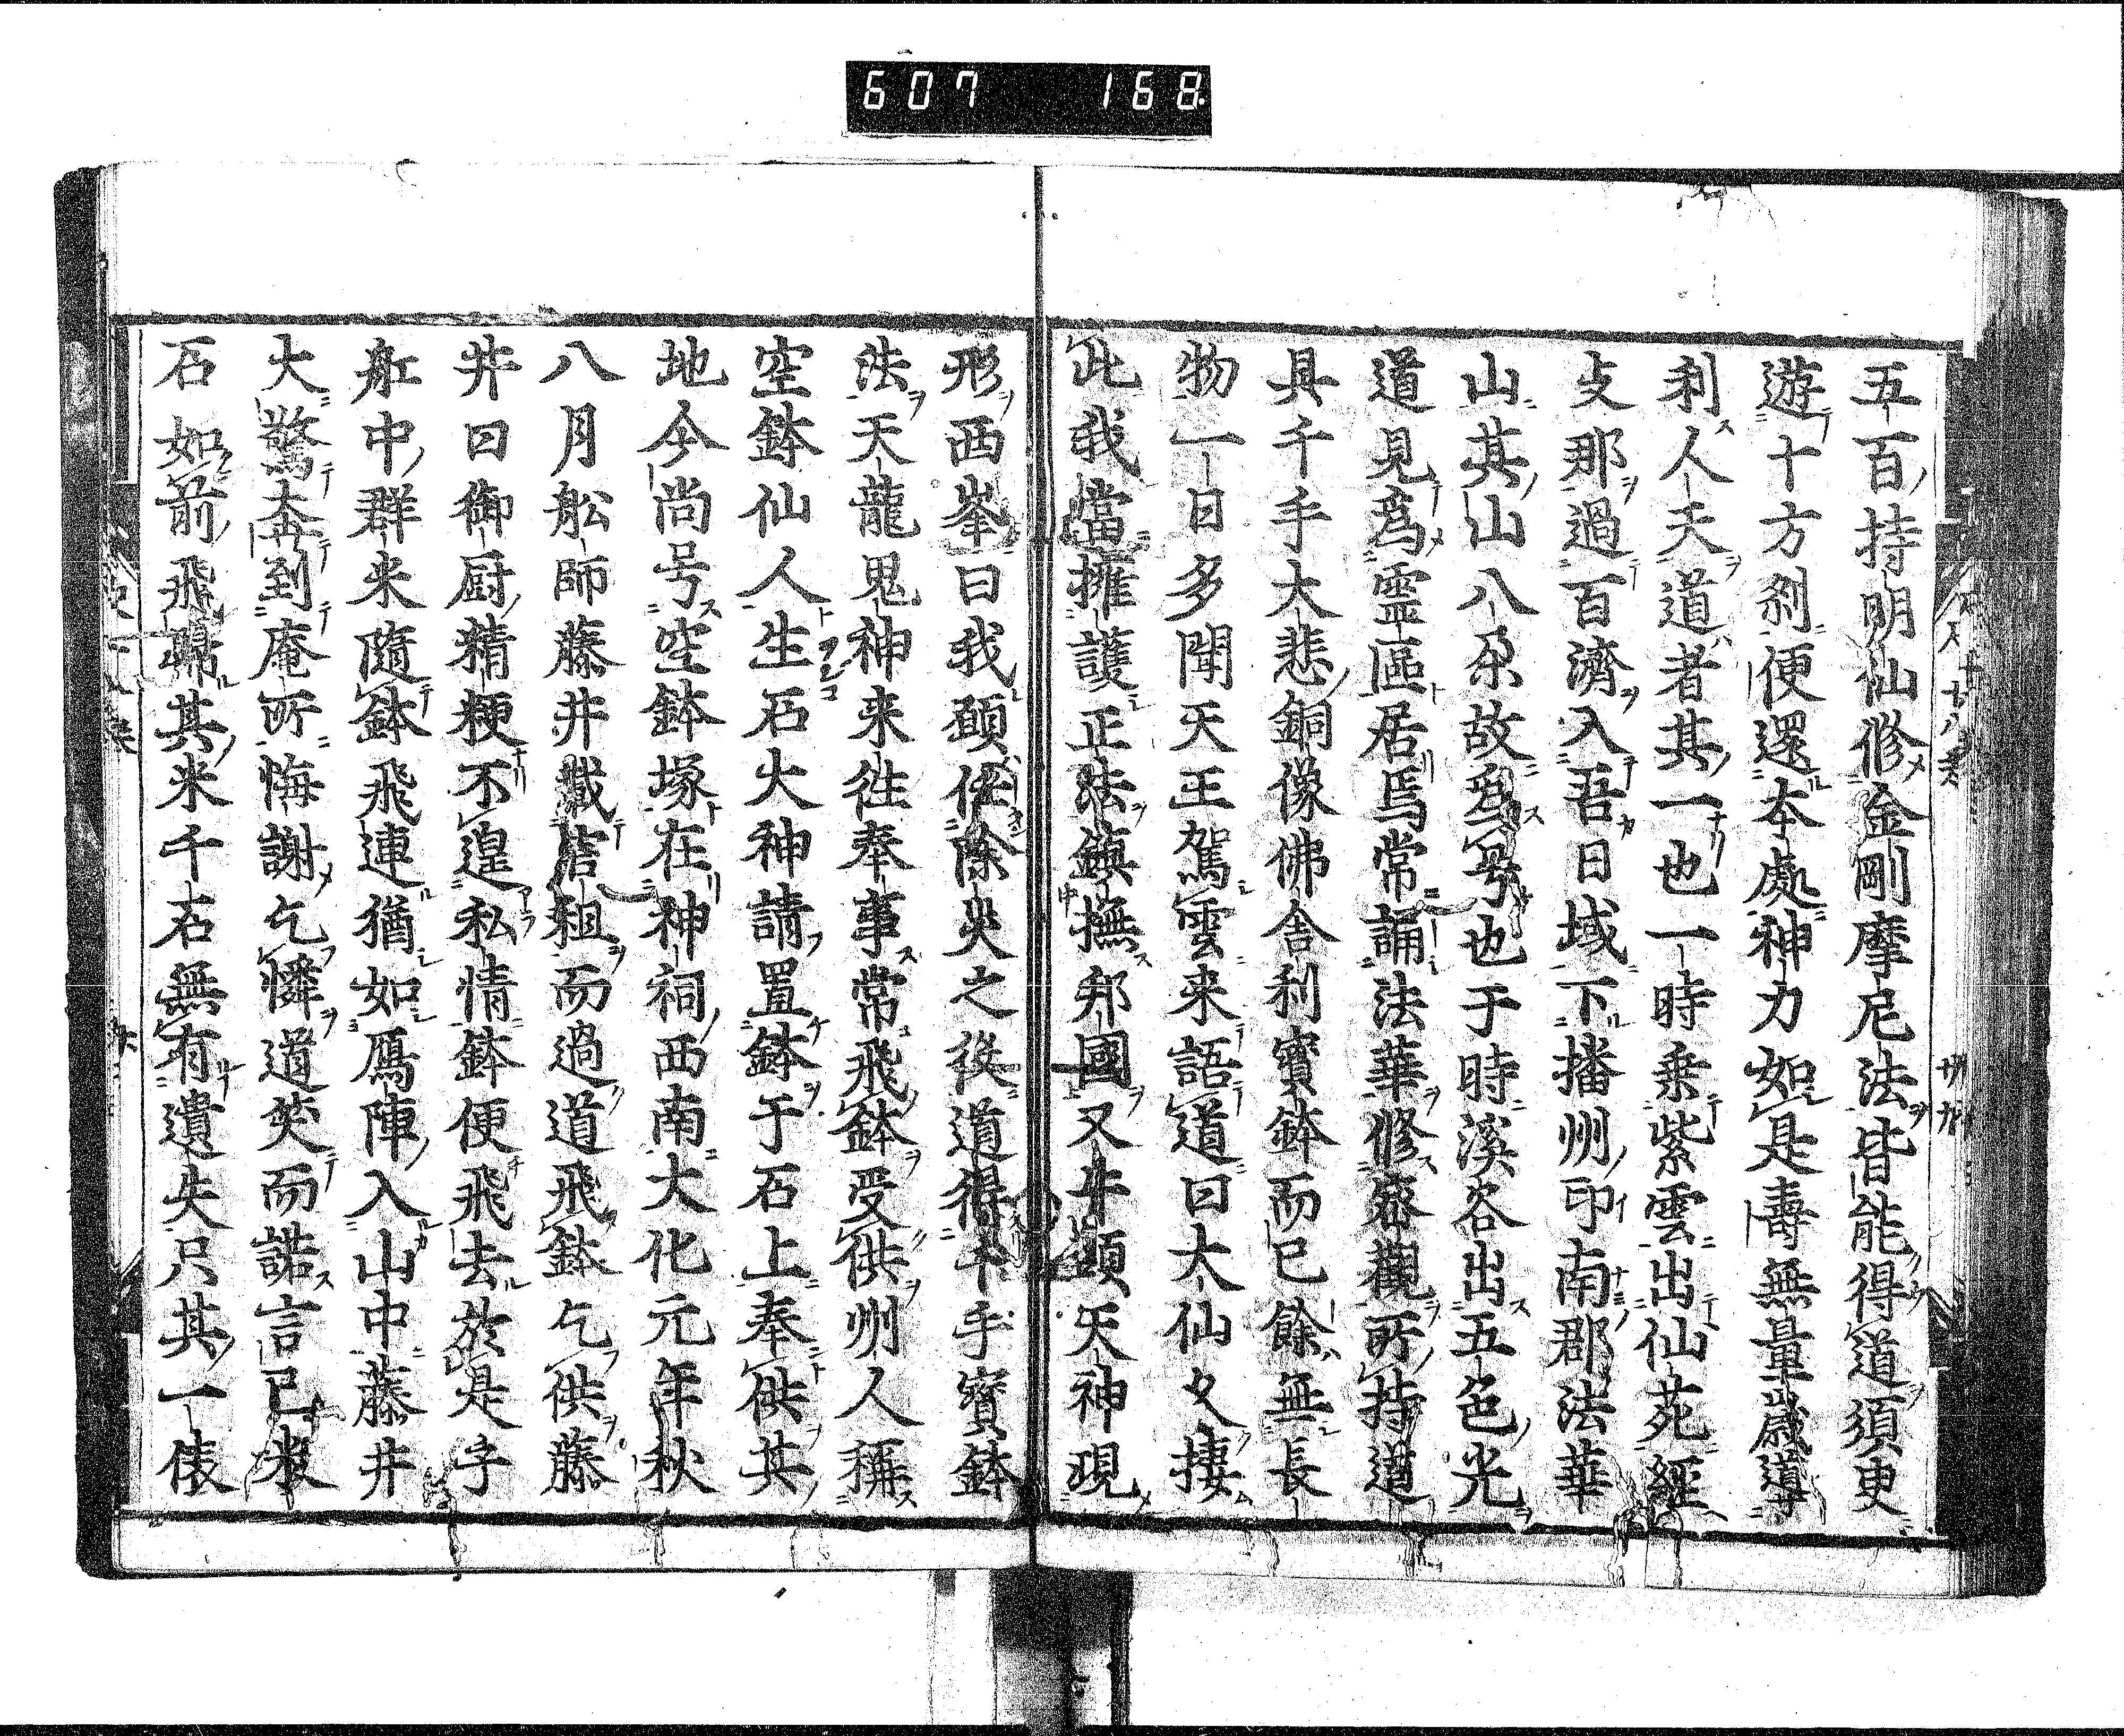 607 168
五百持明仙修金剛摩尼法皆能得道須臾
遊十方刹便還本處神力如是壽無量歳導
利人天道者其一也一時乗紫雲出仙苑經
支那過百濟入吾日域下播州印南郡法華
山其山八朶故爲号也于時溪谷出五色光
道見爲靈區居焉常誦法華修密觀所持道
具千手大悲銅像佛舎利寳鉢而已餘無長
物一日多聞天王駕雲来語道曰大仙久捿
此我當擁護正法鎮撫邦國又牛頭天神現
形西峯曰我願 除災之後道得千手寳鉢
法天龍鬼神来往奉事常飛鉢受供州人稱
空鉢仙人生石大神請置鉢于石上奉供其
地今尚号空鉢塚在神祠西南大化元年秋
八月舩師藤井載 租而過道飛鉢乞供藤
井曰御厨精粳不遑私情鉢便飛去於是乎
舩中群米隨鉢飛連猶如鴈陣入山中藤井
大驚奔到庵所悔謝乞憐道笑而諾言已米
石如前飛歸其米千石無有遺失只其一俵